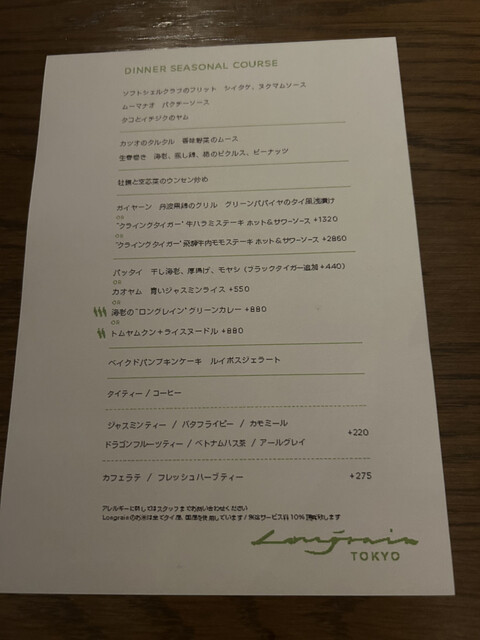 DINNER SEASONAL COURSE
ソフトシェルクラブのフリット シイタケ、ヌクマムソース
ムーマナオ パクチーソース
タコとイチジクのヤム
カツオのタルタル 香味野菜のムース
生春巻き 海老、蒸し鶏、筍のピクルス、ピーナッツ
牡蠣と空芯菜のウンセン炒め
ガイヤーン 丹波黒鶏のグリル グリーンパパイヤのタイ風浅漬け
OR
"クライングタイガー" 牛ハラミステーキ ホット&サワーソース +1320
OR
"クライングタイガー" 飛騨牛内モモステーキ ホット&サワーソース +2860
パッタイ 干し海老、厚揚げ、モヤシ (ブラックタイガー追加 +440)
OR
カオヤム 青いジャスミンライス +550
OR
海老の"ロングレイン"グリーンカレー +880
OR
トムヤムクン+ライスヌードル +880
ベイクドパンプキンケーキ ルイボスジェラート
タイティー / コーヒー
ジャスミンティー / バタフライピー / カモミール
ドラゴンフルーツティー / ベトナムハス茶 / アールグレイ +220
カフェラテ / フレッシュハーブティー +275
アレルギーに関してはスタッフまでお問い合わせください
Longrainのお米は全てタイ産、国産を使用しています / 別途サービス料 10% 頂戴致します
Longrain
TOKYO